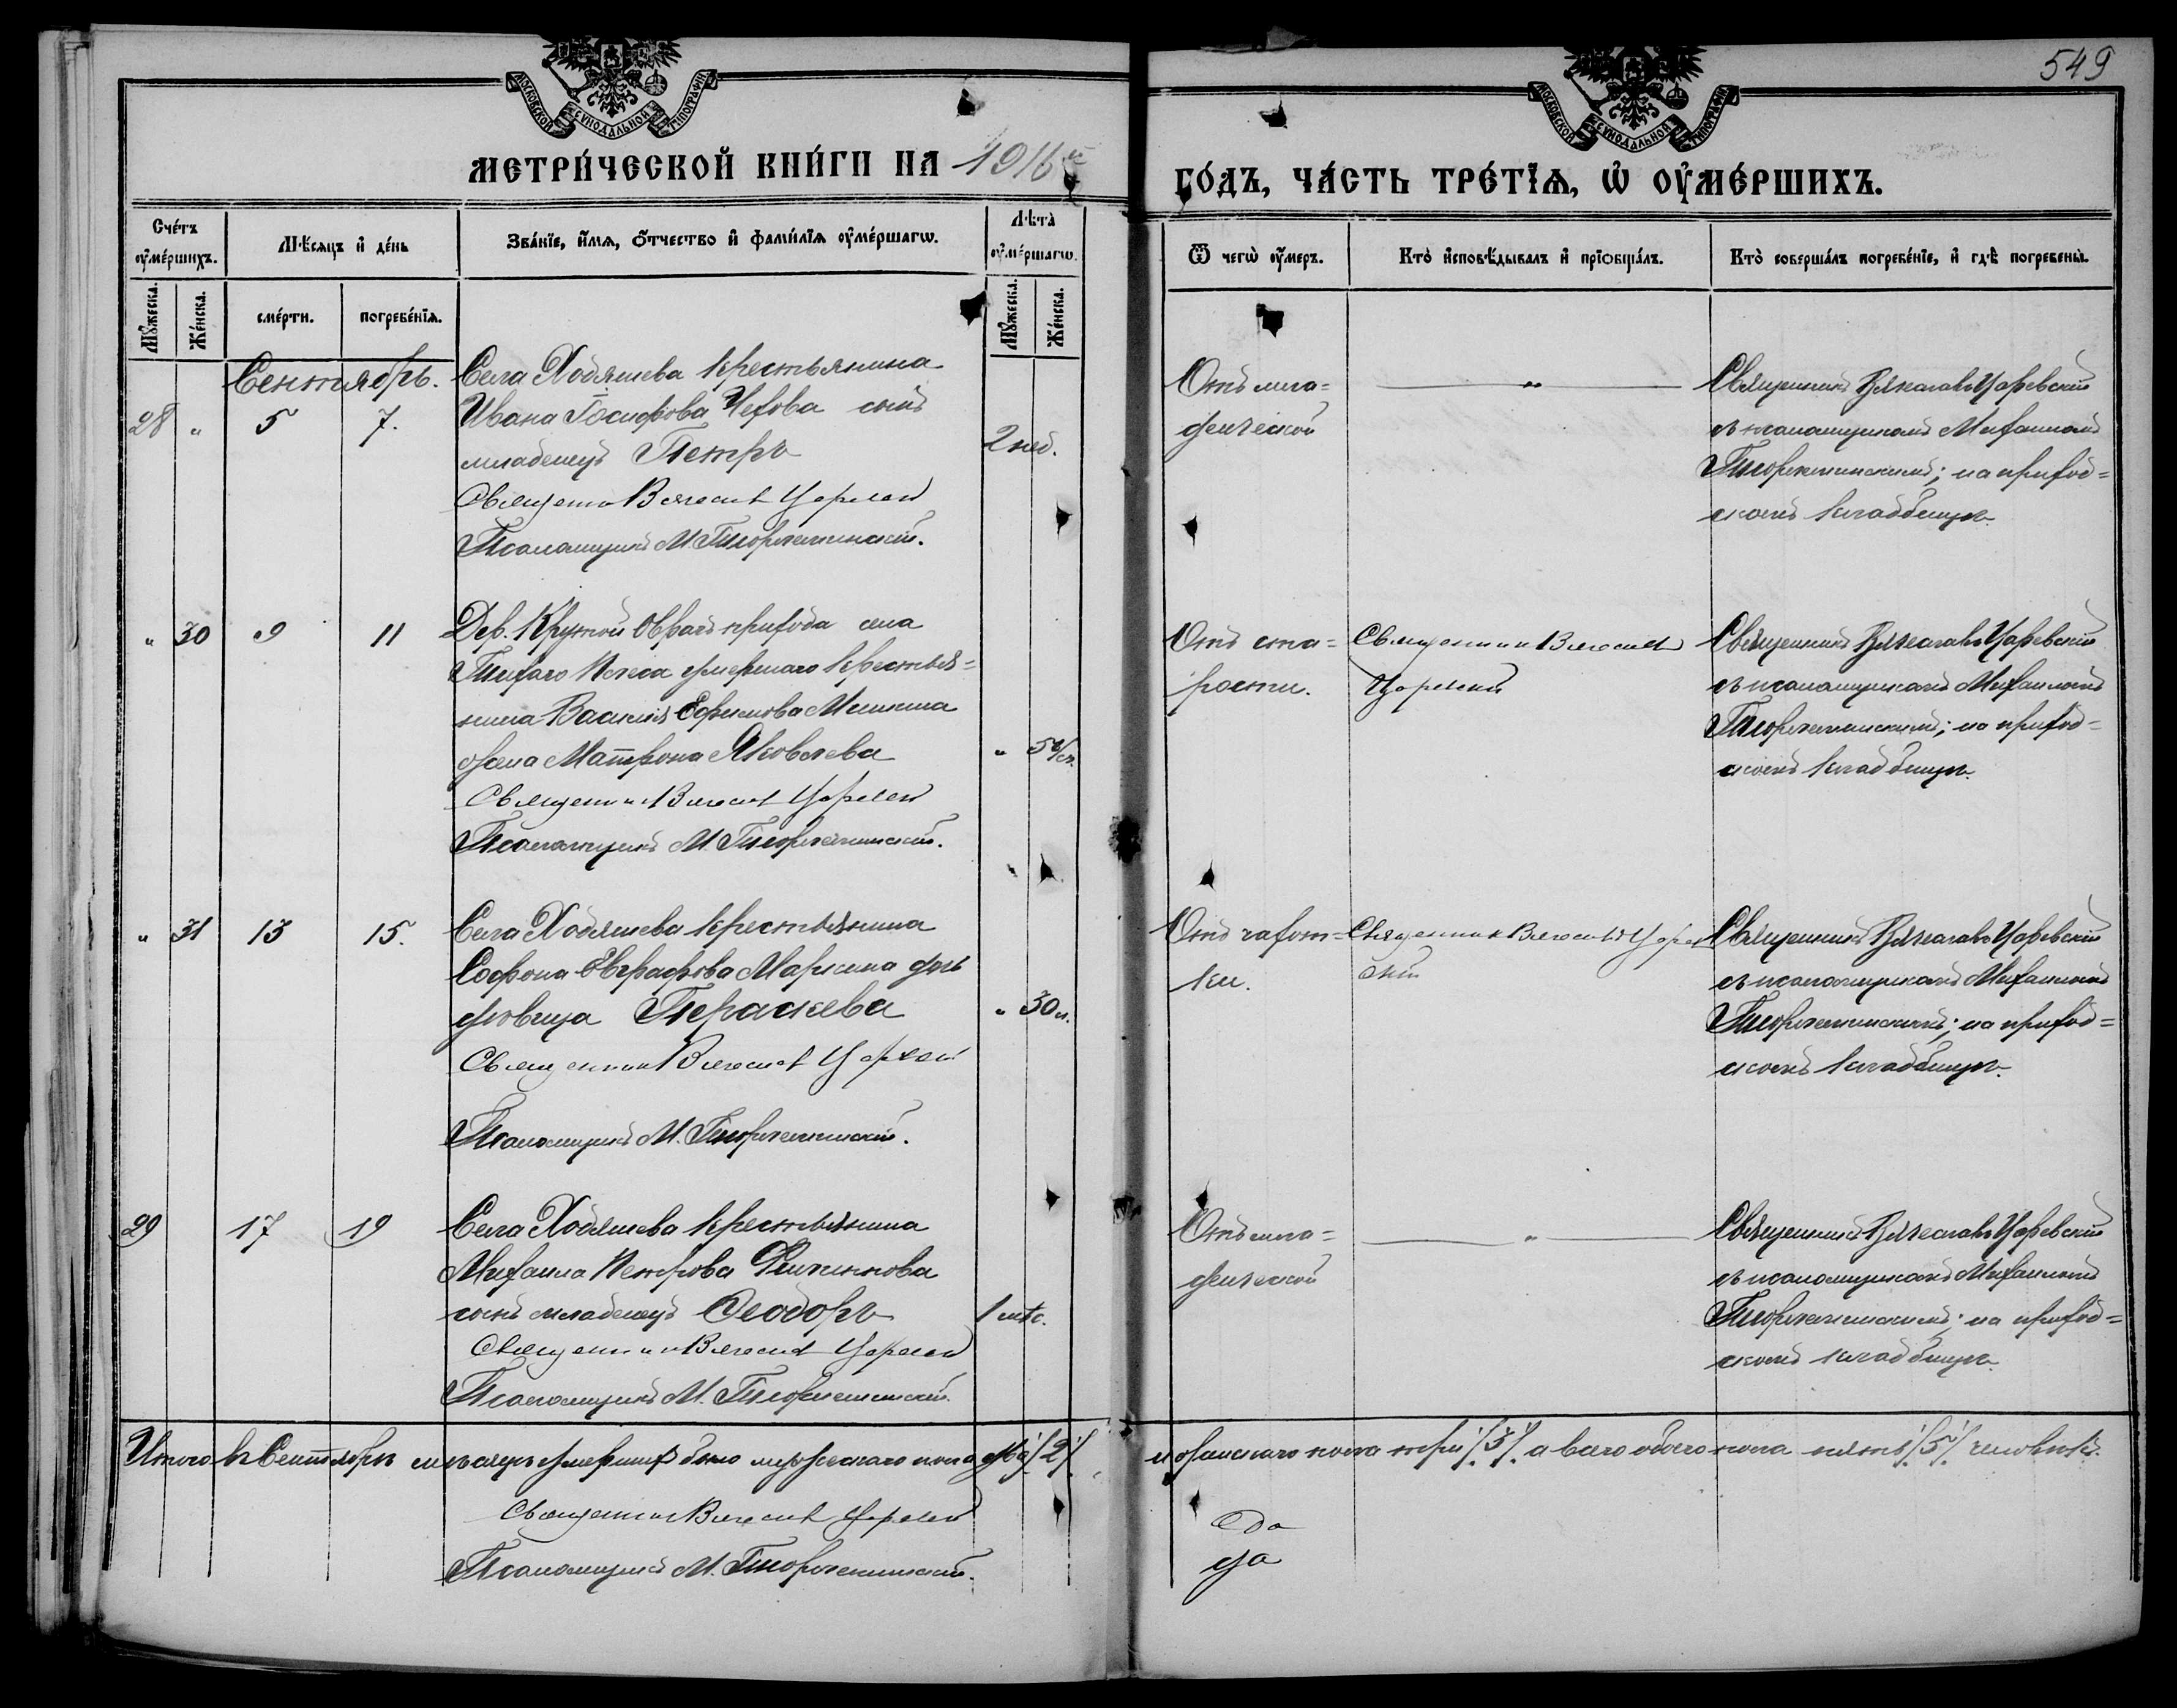 549
МОСКОВСКОЙ СѴНОДАЛЬНОЙ ТИПОГРАФІИ
МОСКОВСКОЙ СѴНОДАЛЬНОЙ ТИПОГРАФІИ
МЕТРИ́ЧЕСКОЙ КНИ́ГИ НА 1916й ГО́ДЪ, ЧА́СТЬ ТРЕ́ТІѦ, Ѡ҆ ОУ҆МЕ́РШИХЪ.
Сче́тъ оу҆ме́ршихъ.
Мꙋ́жеска.
Же́нска.
Мѣ́сяцъ и҆ де́нь
сме́рти.
погребе́нїѧ.
Зва́нїе, и҆́мѧ, ѻ҆́тчество и҆ фами́лїѧ оу҆ме́ршагѡ.
Лѣта̀ оу҆ме́ршагѡ.
Мꙋ́жеска.
Же́нска.
Ѿ чегѡ̀ оу҆́меръ.
Кто̀ и҆сповѣ́дывалъ и҆ прїѻбща́лъ.
Кто̀ соверша́лъ погребе́нїе, и҆ гдѣ̀ погребены̀.
Сентябрь.
28 " 5 7.
Села Ходяшева крестьянина
Ивана Іосифова сынъ
младенецъ Петръ
2 нед.
Священник Вячеслав Царевский
Псаломщикъ М.
Отъ мла=
денческой
"
Священникъ Вячеславъ Царевскій
съ псаломщикомъ Михаиломъ
на приход=
скомъ кладбищѣ
" 30 9 11
Дер. Крутой Оврагъ прихода села
Тихаго Плеса умершаго крестья=
нина Василія Ефимова
жена Матрона Яковлева
"
Священник Вячеслав Царевский
Псаломщикъ М.
Отъ ста=
рости.
Священник Вячеслав
Царевский
Священникъ Вячеславъ Царевскій
съ псаломщикомъ Михаиломъ
на приход=
скомъ кладбищѣ.
" 31 13 15.
Села Ходяшева крестьянина
Софона Евграфова Маркина дочь
дѣвица Параскева
" 30 л.
Священник Вячеслав Царевский
Псаломщикъ М.
Отъ чахот=
ки.
Священник Вячеславъ Царев
ский
Священникъ Вячеславъ Царевскій
съ псаломщикомъ Михаиломъ
на приход=
скомъ кладбищѣ.
29 17 19
Села Ходяшева крестьянина
Михаила Петрова
сынъ младенецъ Ѳеодоръ
1 мѣс.
Священник Вячеслав Царевский
Псаломщикъ М.
Отъ мла=
денческой
"
Священникъ Вячеславъ Царевскій
съ псаломщикомъ Михаиломъ
на приход=
скомъ кладбищѣ.
Итого въ Сентябрѣ мѣсяцѣ умершихъ было мужескаго пола два /2/, и женскаго пола три /3/. а всего обоего пола пять /5/ человѣкъ.
Священник Вячеслав Царевский
Псаломщикъ М.